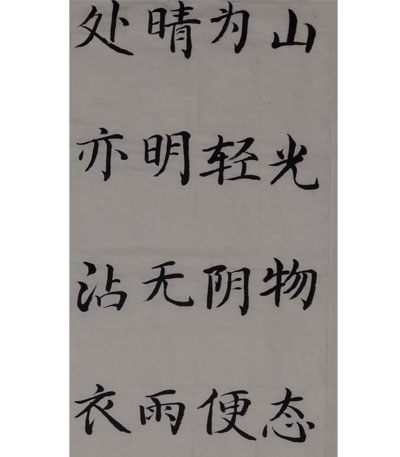 山光物态
为轻阴便
晴明无雨
处亦沾衣